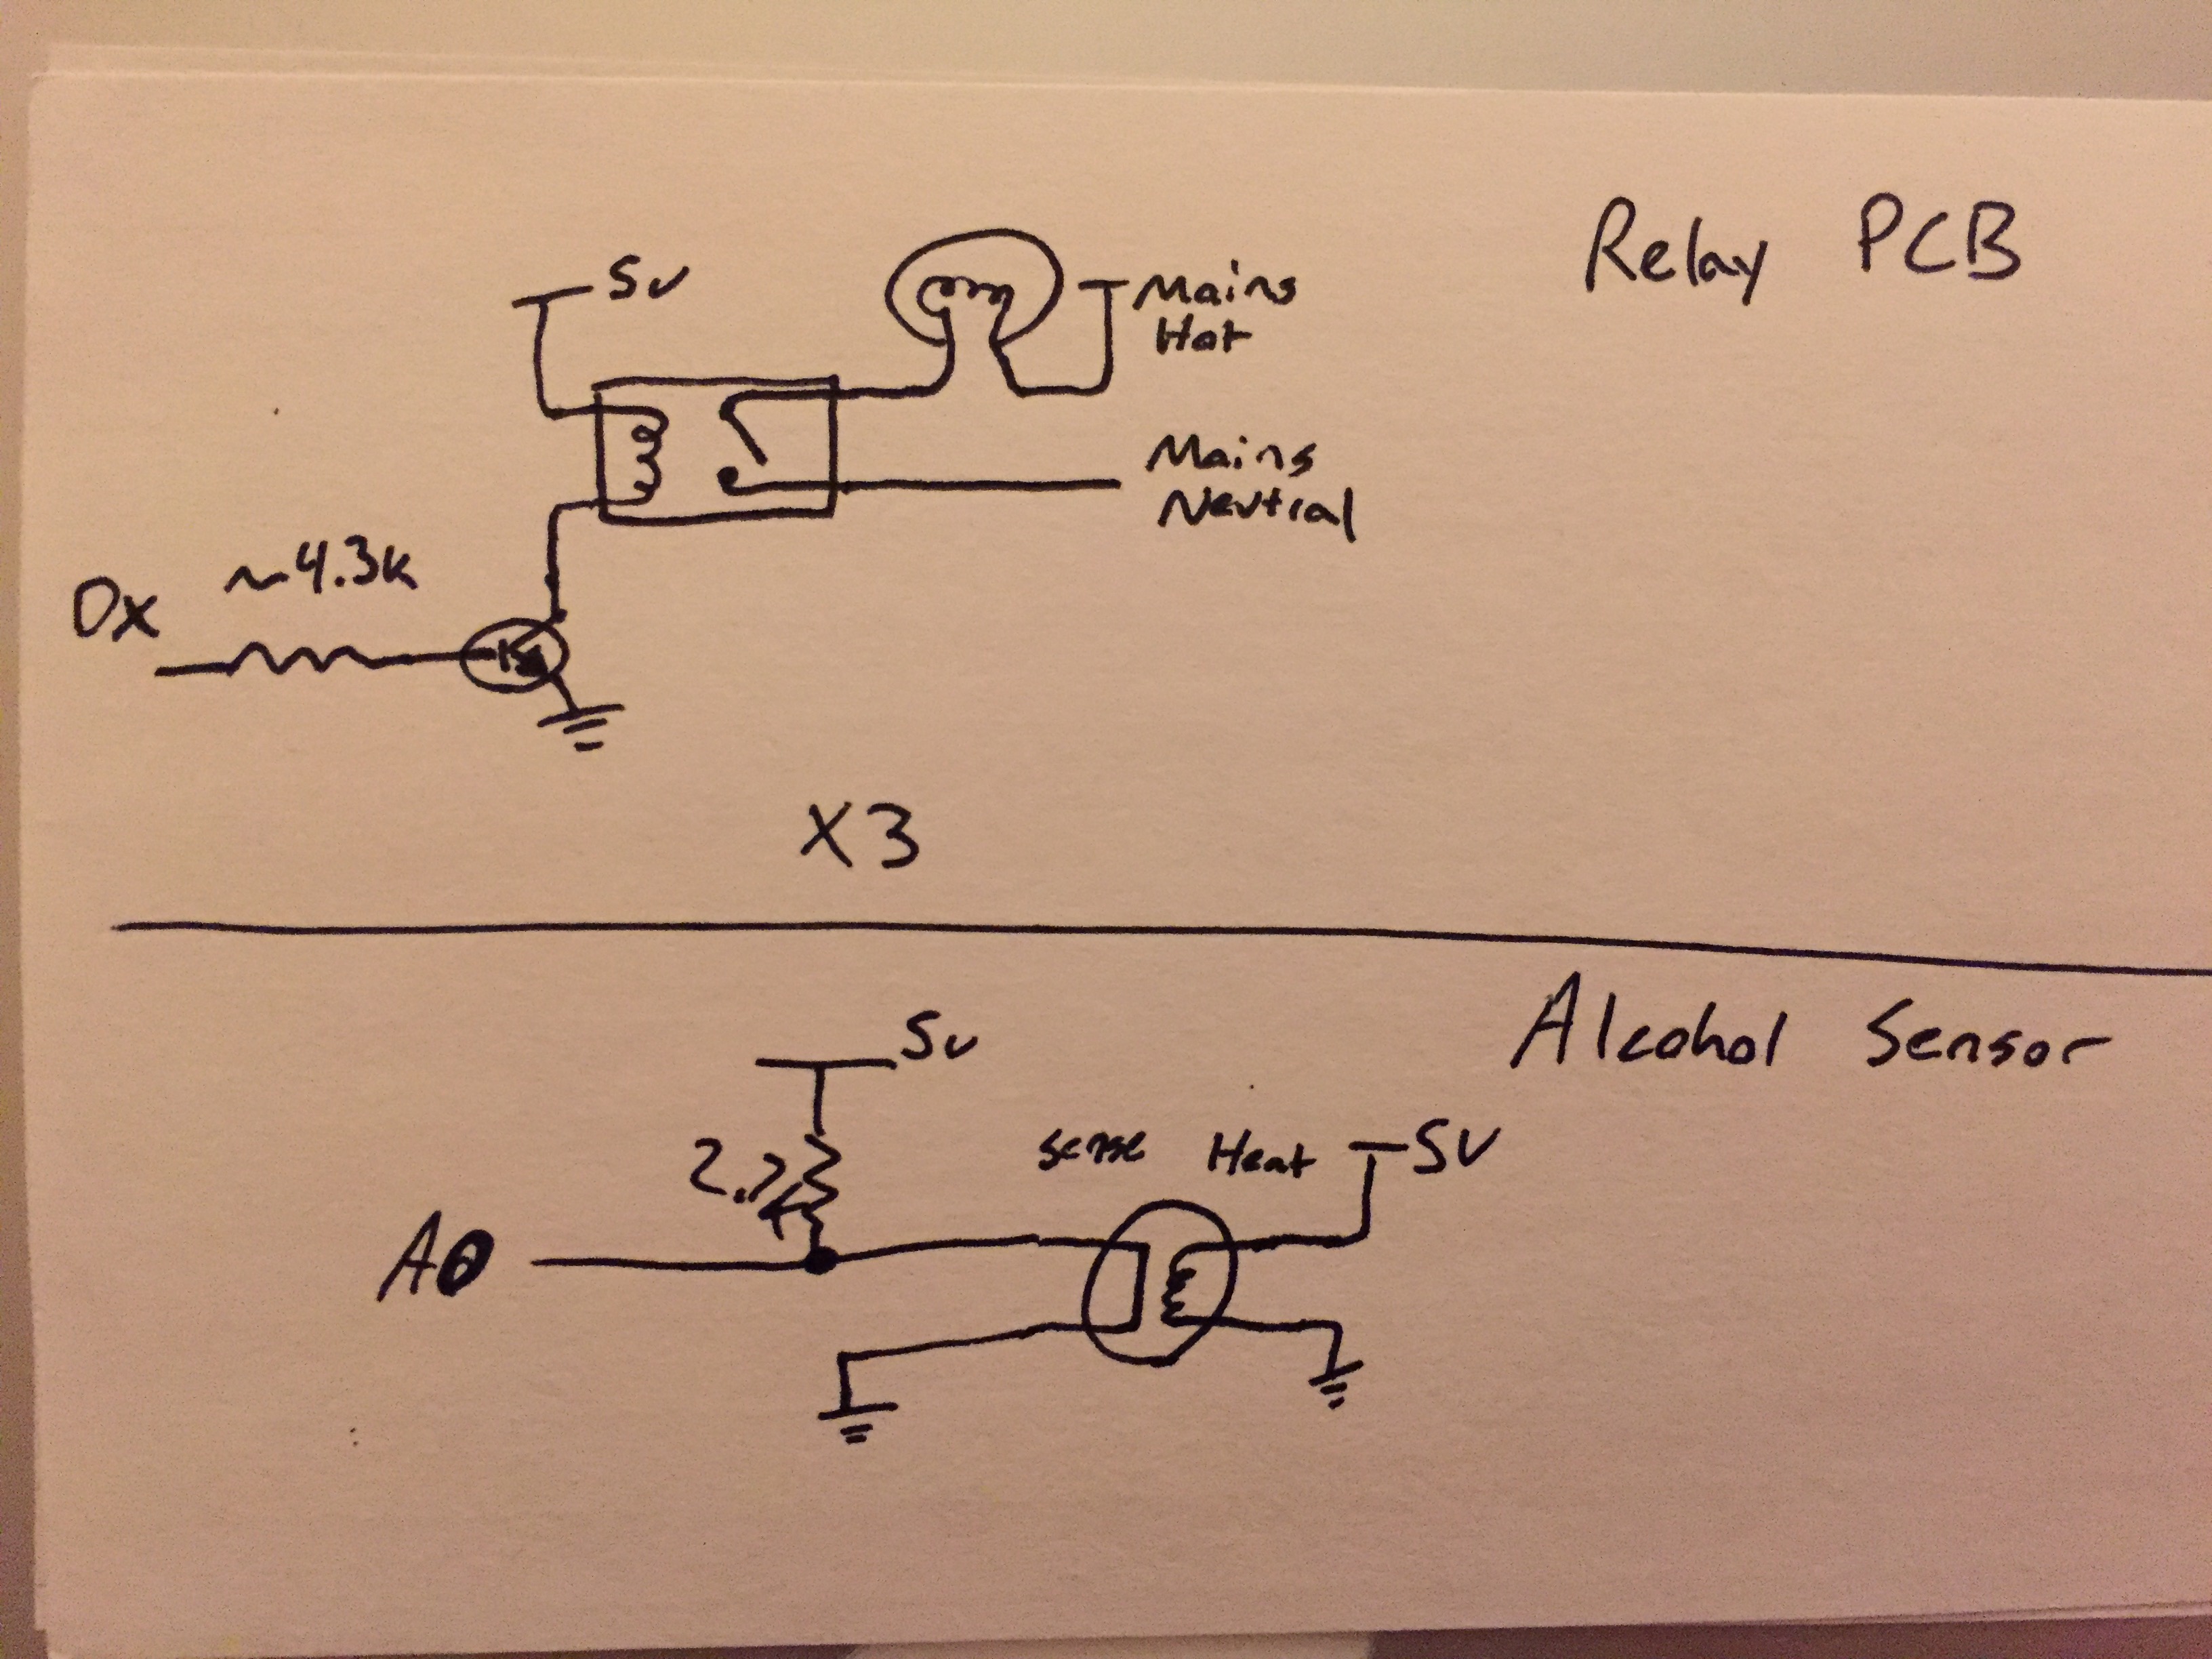 Relay PCB
5v
Mains
Hot
Mains
Neutral
~4.3k
Dx
X3
Alcohol Sensor
5v
2.7k
sense Heat
5V
A0